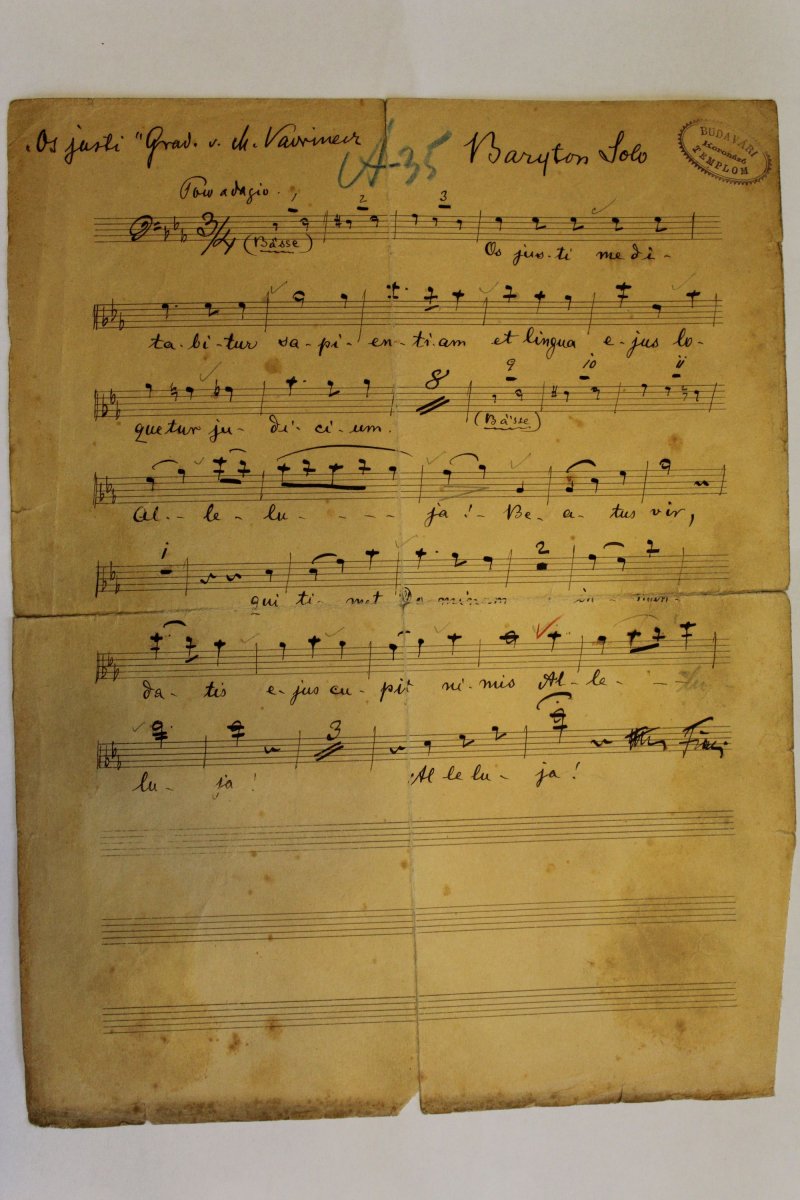 "Os justi" Grad. v. M. Vavrinecz
A-35
Baryton Solo
BUDAVÁRI
Koronázó
TEMPLOM
Poco adagio.
1 2 3
3/4 (Bässe)
Os jus-ti medi-
ta-bi-tur sa-pi-en-tiam et lingua e-jus lo-
8 9 10 11
quetur ju-di-ci-um. (Bässe)
Al-le-lu- - - - ja! Be-a-tus vir,
1 2
qui ti-met Dominum in man-
da-tis e-jus cu-pit ni-mis Al-le- - -
3
lu-ja! Allelu-ja!